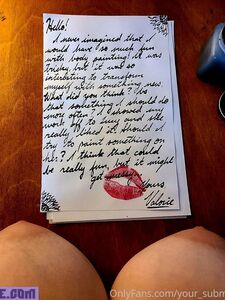 Hello!
I never imagined that I
would have so much fun
with body painting! It was
tricky, but it was so
interesting to transform
myself with something new.
What did you think? Is
that something I should do
more often? I showed my
work off to Lucy and she
really liked it. Should I
try to paint something on
her? I think that could
be really fun, but it might
get messy.
Yours,
Valorie
E.COM
OnlyFans.com/your_subm